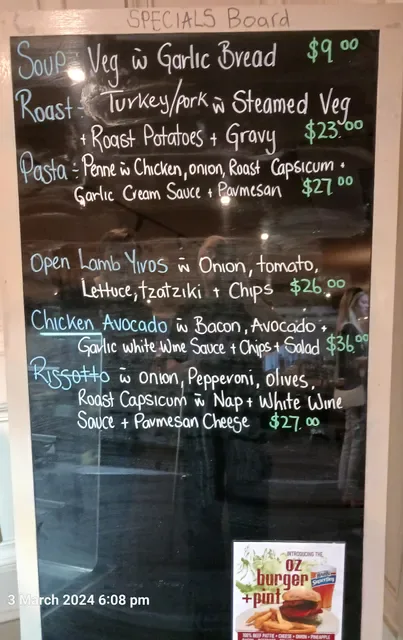 SPECIALS Board
Soup: Veg w̄ Garlic Bread $9.00
Roast: Turkey/pork w̄ Steamed Veg
+ Roast Potatoes + Gravy $23.00
Pasta: Penne w̄ Chicken, onion, Roast Capsicum +
Garlic Cream Sauce + Parmesan $27.00
Open Lamb Yiros w̄ Onion, tomato,
Lettuce, tzatziki + Chips $26.00
Chicken Avocado w̄ Bacon, Avocado +
Garlic white Wine Sauce + Chips + Salad $36.00
Rissotto w̄ onion, Pepperoni, olives,
Roast Capsicum w̄ Nap + White Wine
Sauce + Parmesan Cheese $27.00
INTRODUCING THE
oz
burger
+pint
3 March 2024 6:08 pm